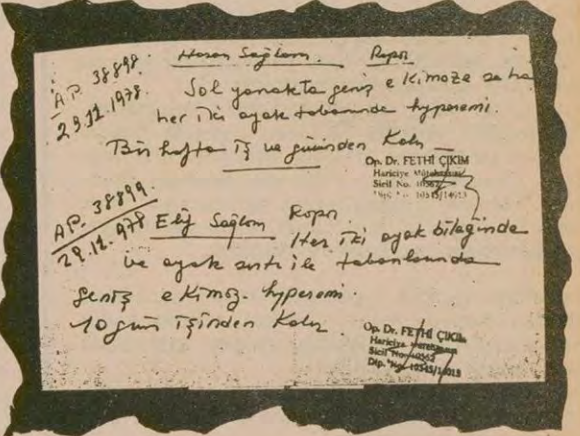 A.P. 38898.
29.11.1978
Hasan Sağlam. Rapor
Sol yanakta geniş ekimoze saha
her iki ayak tabanında hyperemi.
Bir hafta iş ve gücünden kalır
Op. Dr. FETHİ ÇIKIM
Hariciye Mütehassısı
Sicil No.
A.P. 38899.
29.11.978
Elif Sağlam Rapor
Her iki ayak bileğinde
ve ayak sırtı ile tabanlarında
geniş ekimoz. hyperemi.
10 gün işinden kalır.
Op. Dr. FETHİ ÇIKIM
Hariciye
Sicil No.
Dip. No. 10545/14013